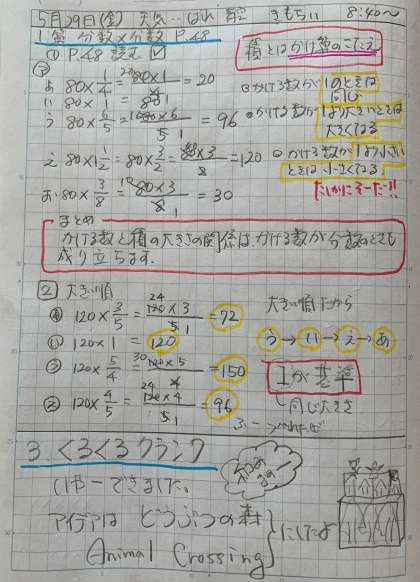 5月29日(金) 天気…はれ 8:40〜
1. 分数×分数 P.48
① P.48 読む ☑
積とはかけ算のこたえ
あ 80×1/4=80×1/4=20
い 80×1=80
う 80×6/5=80×6/5=96
え 80×1 1/2=80×3/2=80×3/2=120
お 80×3/8=80×3/8=30
かける数が1のときは同じ
かける数が1より大きいときは大きくなる
かける数が1より小さいときは小さくなる
たしかにそーだ!!
まとめ
かける数と積の大きさの関係は、かける数が分数のときも
成り立ちます。
2 大きい順
あ 120×3/5=120×3/5=72
い 120×1=120
う 120×5/4=120×5/4=150
え 120×4/5=120×4/5=96
大きい順だから
う→い→え→あ
1が基準
同じ大きさ
3. くるくるクランク
いやーできました。
アイデアは どうぶつの森
Animal Crossing
にしたよ